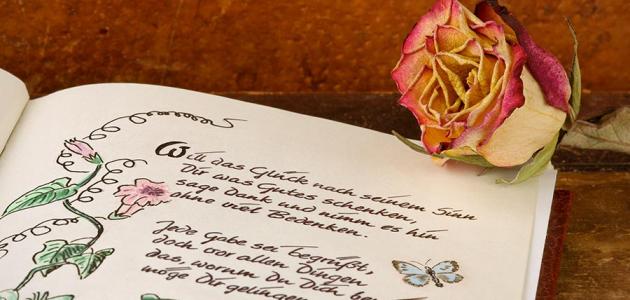 Will das Glück nach seinem Sinn
Dir was Gutes schenken,
sage Dank und nimm es hin
ohne viel Bedenken.
Jede Gabe sei begrüßt,
doch vor allen Dingen
das, worum Du Dich be
möge Dir gelingen